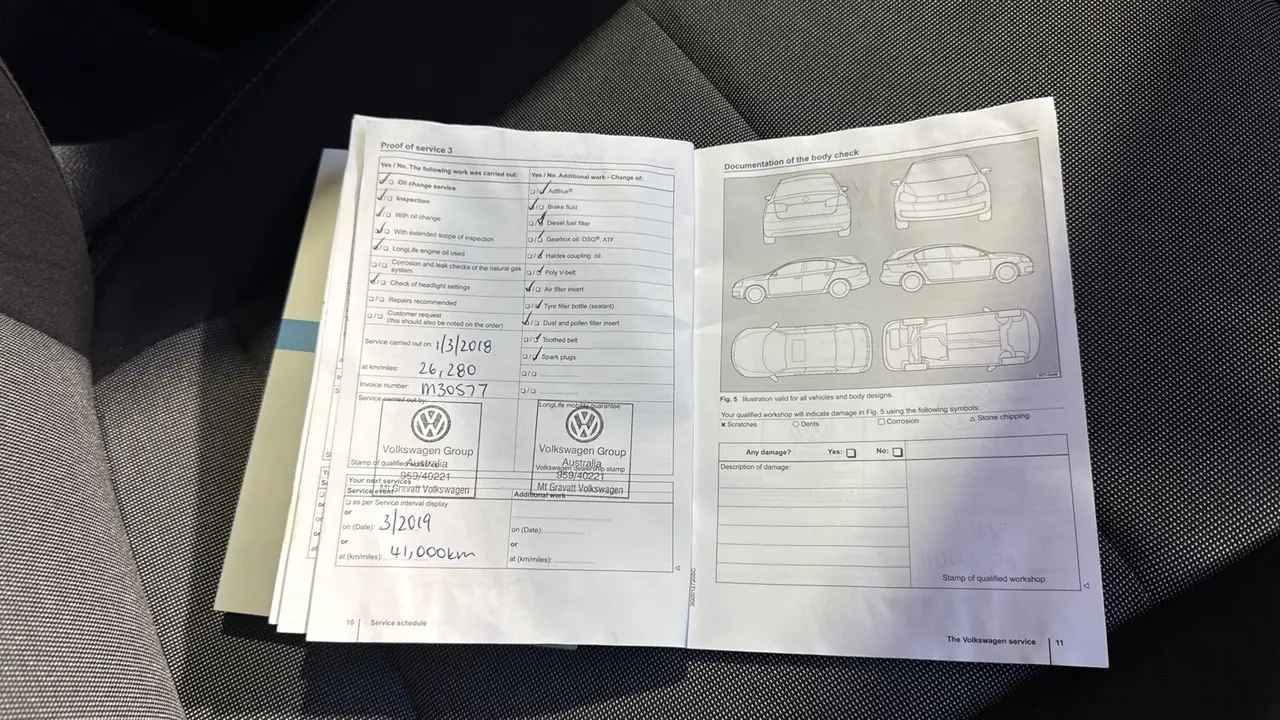 Proof of service 3
Yes / No. The following work was carried out:
Oil change service
Inspection
With oil change
With extended scope of inspection
LongLife engine oil used
Corrosion and leak checks of the natural gas
system
Check of headlight settings
Repairs recommended
Customer request
(this should also be noted on the order)
Service carried out on: 1/3/2018
at km/miles: 26,280
Invoice number: M30577
Service carried out by:
Volkswagen Group
Australia
959/40221
Mt Gravatt Volkswagen
Stamp of qualified workshop
Yes / No. Additional work - Change of:
AdBlue®
Brake fluid
Diesel fuel filter
Gearbox oil: DSG®, ATF
Haldex coupling: oil
Poly V-belt
Air filter insert
Tyre filler bottle (sealant)
Dust and pollen filter insert
Toothed belt
Spark plugs
LongLife mobility guarantee:
Volkswagen Group
Australia
959/40221
Mt Gravatt Volkswagen
Volkswagen dealership stamp
Your next services
Service event
as per Service interval display
or
on (Date): 3/2019
or
at (km/miles): 41,000km
Additional work
on (Date):
or
at (km/miles):
10 Service schedule
Documentation of the body check
Fig. 5 Illustration valid for all vehicles and body designs.
Your qualified workshop will indicate damage in Fig. 5 using the following symbols:
× Scratches ○ Dents □ Corrosion △ Stone chipping
Any damage? Yes: No:
Description of damage:
Stamp of qualified workshop
The Volkswagen service 11